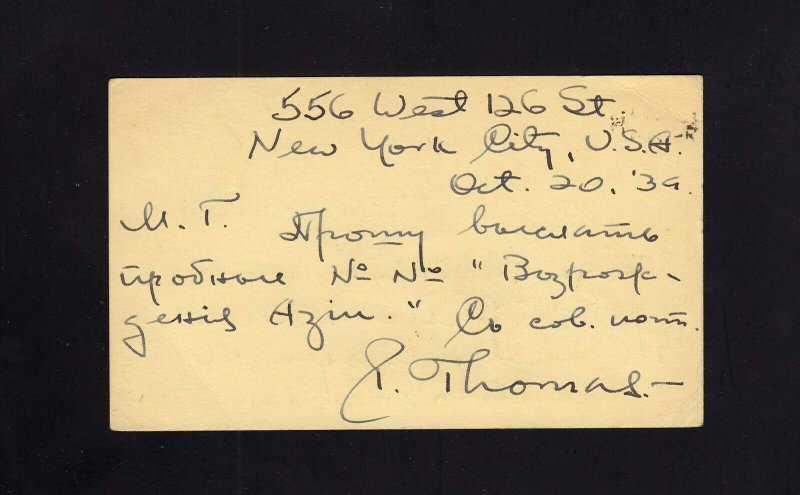 556 West 126 St.
New York City, U.S.A.
Oct. 20, '39.
М. Г. Прошу высылать
пробные № № "Возрож-
денія Азіи." Съ сов. почт.
P. Thomas.—